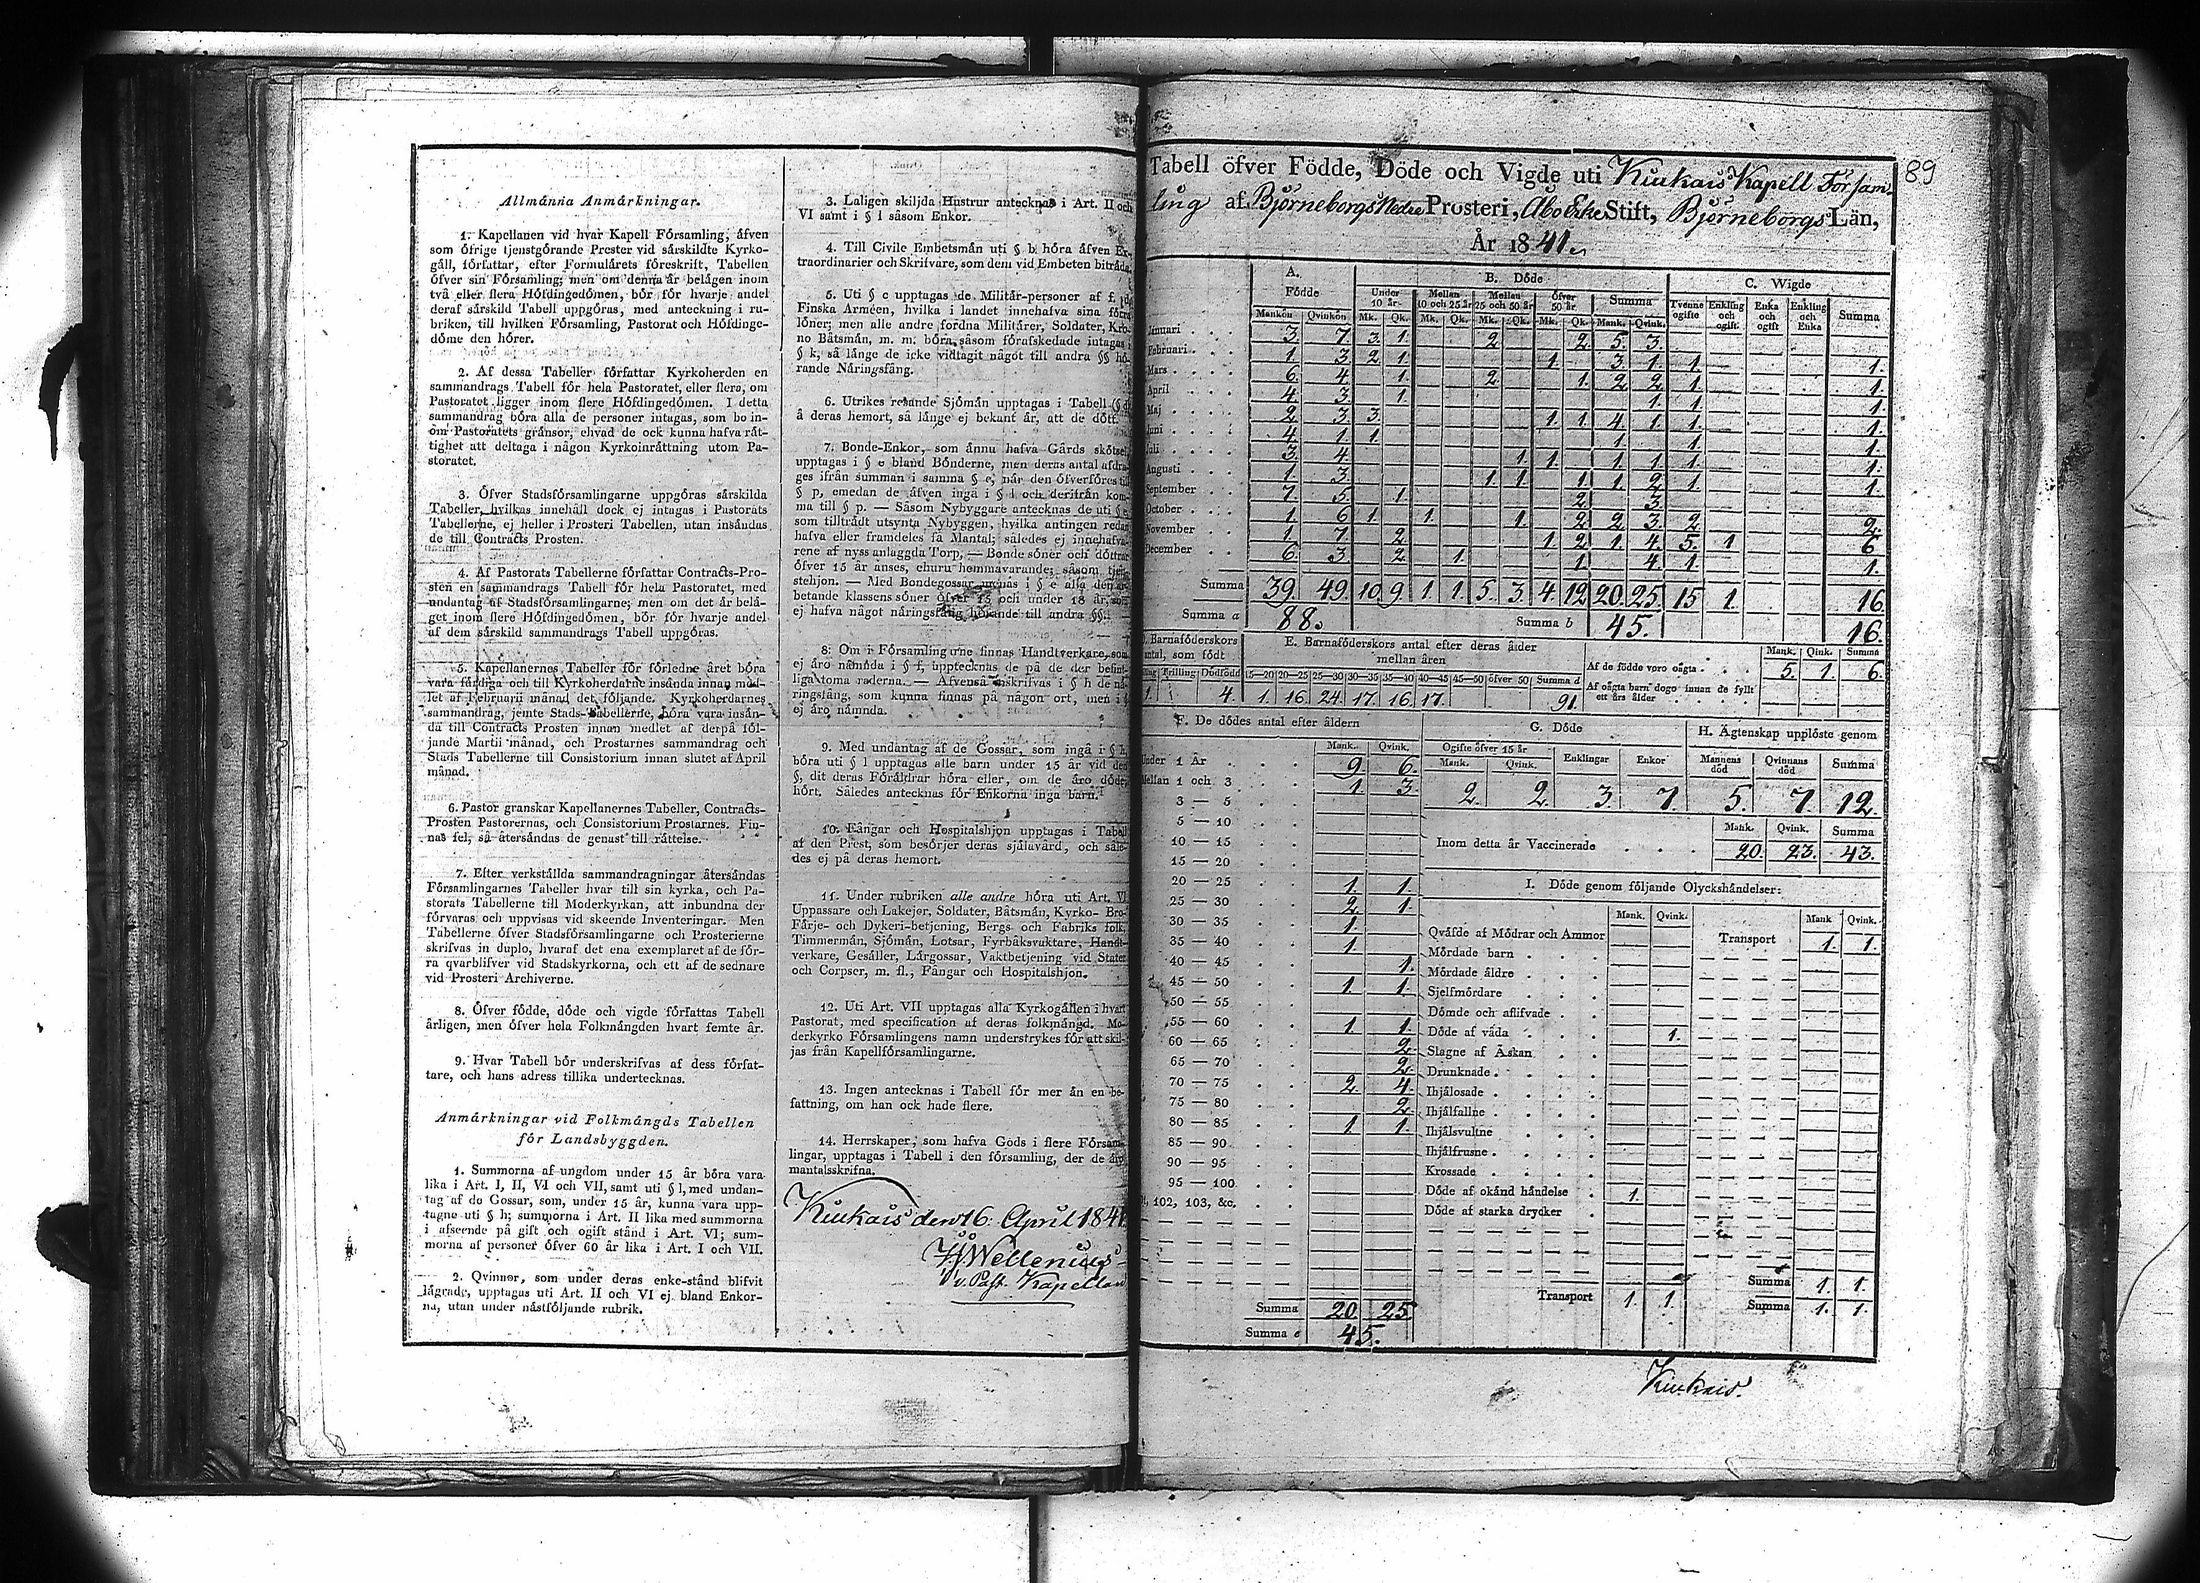 Allmánna Anmárkningar.
1. Kapellanen vid hvar Kapell Fórsamling, áfven
som ófrige tjenstgórande Prester vid sárskildte Kyrko-
gáll, fórfattar, efter Formulárets fóreskrift, Tabellen
ófver sin Fórsamling; men om denna ár belágen inom
två eller flera Hófdingedómen, bór fór hvarje andel
deraf sárskild Tabell uppgóras, med anteckning i ru-
briken, till hvilken Fórsamling, Pastorat och Hófdinge-
dóme den hórer.
2. Af dessa Tabeller fórfattar Kyrkoherden en
sammandrags Tabell fór hela Pastoratet, eller flera, om
Pastoratet ligger inom flere Hófdingedómen. I detta
sammandrag bóra alla de personer intagas, som bo in-
om Pastoratets gránsor, ehvad de ock kunna hafva rát-
tighet att deltaga i någon Kyrkoinråttning utom Pa-
storatet.
3. Ófver Stadsfórsamlingarne uppgóras sárskilda
Tabeller, hvilkas innehåll dock ej intagas i Pastorats
Tabellerne, ej heller i Prosteri Tabellen, utan insándas
de till Contracts Prosten.
4. Af Pastorats Tabellerne fórfattar Contracts-Pro-
sten en sammandrags Tabell fór hela Pastoratet, med
undantag af Stadsfórsamlingarne; men om det ár belá-
get inom flere Hófdingedómen, bór fór hvarje andel
af dem sárskild sammandrags Tabell uppgóras.
5. Kapellanernes Tabeller fór fórledne året bóra
vara fárdiga och till Kyrkoherdarne insánda innan med-
let af Februarii månad det fóljande. Kyrkoherdarnes
sammandrag, jemte Stads-Tabellerne, bóra vara insán-
da till Contracts Prosten innan medlet af derpå fól-
jande Martii månad, och Prostarnes sammandrag och
Stads Tabellerne till Consistorium innan slutet af April
månad.
6. Pastor granskar Kapellanernes Tabeller, Contracts-
Prosten Pastorernas, och Consistorium Prostarnes. Fin-
nas fel, så átersándas de genast till ráttelse.
7. Efter verkstállda sammandragningar átersándas
Fórsamlingarnes Tabeller hvar till sin kyrka, och Pa-
storats Tabellerne till Moderkyrkan, att inbundna der
fórvaras och uppvisas vid skeende Inventeringar. Men
Tabellerne ófver Stadsfórsamlingarne och Prosterierne
skrifvas in duplo, hvaraf det ena exemplaret af de fór-
ra qvarblifver vid Stadskyrkorna, och ett af de sednare
vid Prosteri Archiverne.
8. Ófver fódde, dóde och vigde fórfattas Tabell
årligen, men ófver hela Folkmángden hvart femte år.
9. Hvar Tabell bór underskrifvas af dess fórfat-
tare, och hans adress tillika undertecknas.
Anmárkningar vid Folkmángds Tabellen
fór Landsbyggden.
1. Summorna af ungdom under 15 år bóra vara
lika i Art. I, II, VI och VII, samt uti § l, med undan-
tag af de Gossar, som, under 15 år, kunna vara upp-
tagne uti § h; summorna i Art. II lika med summorna
i afseende på gift och ogift stånd i Art. VI; sum-
morna af personer ófver 60 år lika i Art. I och VII.
2. Qvinnor, som under deras enke-stånd blifvit
lágrade, upptagas uti Art. II och VI ej bland Enkor-
na, utan under nástfóljande rubrik.
3. Laligen skiljda Hustrur antecknas i Art. II och
VI samt i § l såsom Enkor.
4. Till Civile Embetsmán uti § b hóra áfven Ex-
traordinarier och Skrifvare, som dem vid Embeten bitráda.
5. Uti § c upptagas de Militár-personer af f. d.
Finska Arméen, hvilka i landet innehafva sina fórra
lóner; men alle andre fordna Militárer, Soldater, Kro-
no Båtsmán, m. m. bóra såsom fórafskedade intagas i
§ k, så lánge de icke vidtagit något till andra §§ hó-
rande Náringsfáng.
6. Utrikes resande Sjómán upptagas i Tabell
å deras hemort, så lánge ej bekant ár, att de dótt.
7. Bonde-Enkor, som ánnu hafva Gårds skótsel,
upptagas i § e bland Bónderne, men deras antal afdra-
ges ifrån summan i samma § e, når den ófverfóres till
§ p, emedan de áfven ingå i § l och derifrån kom-
ma till § p. — Såsom Nybyggare antecknas de uti § e
som tilltrádt utsynta Nybyggen, hvilka antingen redan
hafva eller framdeles få Mantal; således ej innehafva-
rene af nyss anlaggda Torp, — Bonde sóner och dóttrar
ófver 15 år anses, ehuru hemmavarande, såsom tjen-
stehjon. — Med Bondegossar menas i § e alla den ar-
betande klassens sóner ófver 15 och under 18 år, som
ej hafva något náringsfáng hórande till andra §§.
8. Om i Fórsamlingarne finnas Handtverkare, som
ej áro námnda i § f, upptecknas de på de der befint-
liga tomma raderna. — Áfvenså inskrifvas i § h de ná-
ringsfáng, som kunna finnas på någon ort, men i §
ej áro námnda.
9. Med undantag af de Gossar, som ingå i § h,
bóra uti § l upptagas alle barn under 15 år vid den
§, dit deras Fóráldrar hóra eller, om de áro dóde,
hórt. Således antecknas fór Enkorna inga barn.
10. Fångar och Hospitalshjon upptagas i Tabell
af den Prest, som besórjer deras sjålavård, och såle-
des ej på deras hemort.
11. Under rubriken alle andre hóra uti Art. VI
Uppassare och Lakejer, Soldater, Båtsmán, Kyrko- Bro-
Fárje- och Dykeri-betjening, Bergs och Fabriks folk,
Timmermán, Sjómán, Lotsar, Fyrbåksvaktare, Handt-
verkare, Gesáller, Lárgossar, Vaktbetjening vid Stater
och Corpser, m. fl., Fångar och Hospitalshjon.
12. Uti Art. VII upptagas alla Kyrkogållen i hvart
Pastorat, med specification af deras folkmángd. Mo-
derkyrko Fórsamlingens namn understrykes fór att skil-
jas från Kapellfórsamlingarne.
13. Ingen antecknas i Tabell fór mer án en be-
fattning, om han ock hade flere.
14. Herrskaper, som hafva Gods i flere Fórsam-
lingar, upptagas i Tabell i den fórsamling, der de áro
mantalsskrifna.
Kiukais den 16. April 184
Wellenius
v. Past. Kapellan
89
Tabell öfver Födde, Döde och Vigde uti Kiukais Kapell Församˍ
ling af Björneborgs Nedre Prosteri, Åbo Erke Stift, Björneborgs Län,
År 1841.
A. Födde B. Dóde C. Wigde
Under 10 år Mellan 10 och 25 år Mellan 25 och 50 år Öfver 50 år Summa Tvenne ogifte Enkling och ogift Enka och ogift Enkling och Enka Summa
Mankön Qvinkön Mk. Qk. Mk. Qk. Mk. Qk. Mk. Qk. Mank. Qvink.
Januari 3. 7. 3. 1. 2. 2. 5. 3.
Februari 1. 3. 2. 1. 1. 3. 1. 1. 1.
Mars 6. 4. 1. 2. 1. 2. 2. 1. 1.
April 4. 3. 1. 1. 1. 1.
Maj 2. 3. 3. 1. 1. 4. 1. 1. 1.
Juni 4. 1. 1. 1. 1. 1.
Juli 3. 4. 1. 1. 1. 1. 1. 1.
Augusti 1. 3. 1. 1. 1. 1. 2. 1. 1.
September 7. 5. 1. 2. 3.
October 1. 6. 1. 1. 1. 2. 2. 3. 2. 2.
November 1. 7. 2. 1. 2. 1. 4. 5. 1 6.
December 6. 3. 2. 1. 1. 4. 1. 1.
Summa 39. 49. 10. 9. 1. 1. 5. 3. 4. 12. 20. 25. 15 1. 16.
Summa a 88. Summa b 45. 16.
D. Barnaföderskors antal, som födt
E. Barnaföderskors antal efter deras ålder mellan åren
Mank. Qink. Summa
Af de födde voro oägta 5. 1. 6.
Af oägta barn dogo innan de fyllt ett års ålder
Trilling Dödfödd 15—20 20—25 25—30 30—35 35—40 40—45 45—50 öfver 50 Summa d
1. 4. 1. 16. 24. 17. 16. 17. 91.
F. De dödes antal efter åldern
Mank. Qvink.
Under 1 År 9. 6.
Mellan 1 och 3 1. 3.
3 — 5
5 — 10
10 — 15
15 — 20
20 — 25 1. 1.
25 — 30 2. 1.
30 — 35 1.
35 — 40 1.
40 — 45 1.
45 — 50 1. 1.
50 — 55
55 — 60 1. 1.
60 — 65 2.
65 — 70 2.
70 — 75 2. 4.
75 — 80 2.
80 — 85 1. 1.
85 — 90
90 — 95
95 — 100
102, 103, &c.
Summa 20. 25.
Summa e 45.
G. Döde
Ogifte öfver 15 år Enklingar Enkor
Mank. Qvink.
2. 2. 3. 7.
H. Ägtenskap upplöste genom
Mannens död Qvinnans död Summa
5. 7. 12.
Mank. Qvink. Summa
Inom detta år Vaccinerade 20. 23. 43.
I. Döde genom följande Olyckshändelser:
Mank. Qvink. Mank Qvink.
Qväfde af Mödrar och Ammor
Transport 1. 1.
Mördade barn
Mördade äldre
Sjelfmördare
Dömde och aflifvade
Döde af våda 1.
Slagne af Åskan
Drunknade
Ihjälosade
Ihjälfallne
Ihjälsvultne
Ihjälfrusne
Krossade
Döde af okänd händelse 1.
Döde af starka drycker
Summa 1. 1.
Transport 1. 1. Summa 1. 1.
Kiukais.